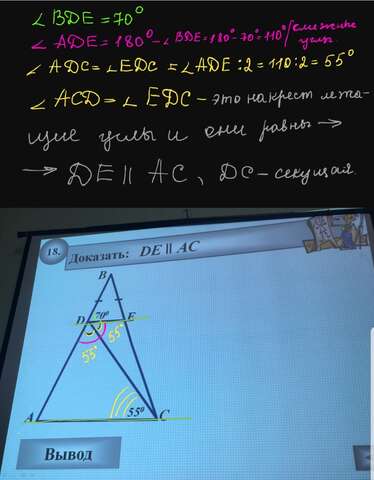 ∠BDE=70°
∠ADE=180°-∠BDE=180°-70°=110°/смежные углы
∠ADC=∠EDC=∠ADE:2=110:2=55°
∠ACD=∠EDC-это накрест лежа-
щие углы и они равны→
→DE||AC, DC-секущая.
18. Доказать: DE || AC
B
D 70° E
55° 55°
A 55° C
Вывод